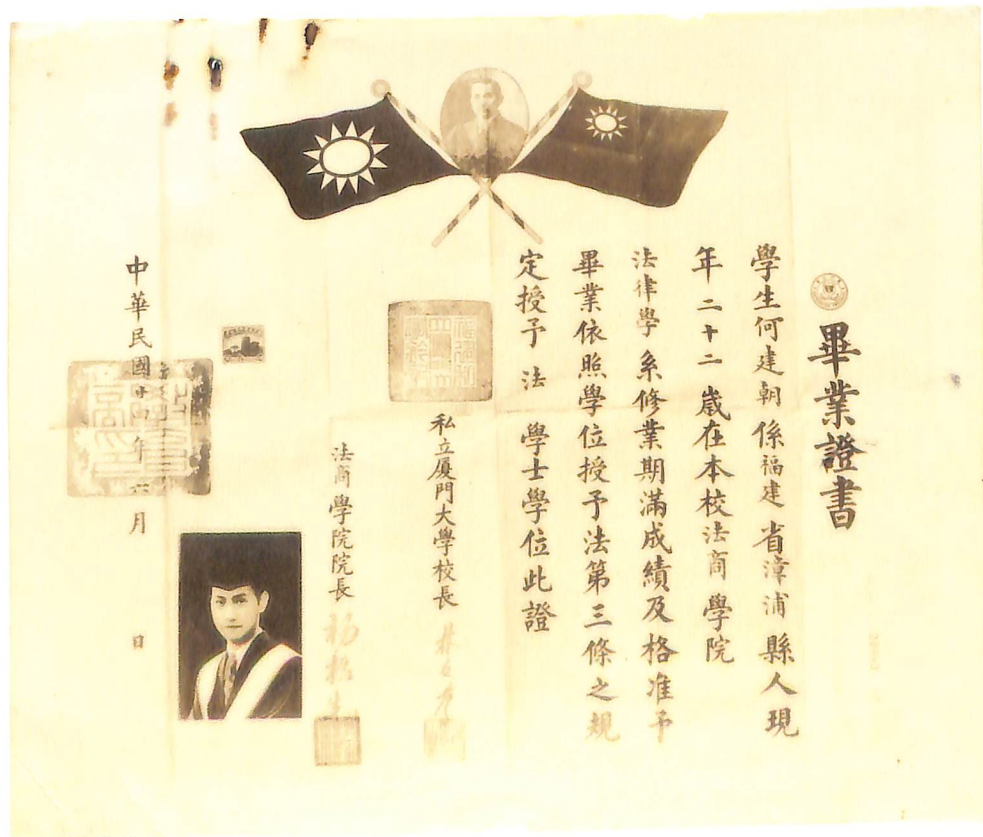 畢業證書
學生何建朝係福建省漳浦縣人現
年二十二歲在本校法商學院
法律學系修業期滿成績及格准予
畢業依照學位授予法第三條之規
定授予法學士學位此證
私立厦門大學校長
法商學院院長
中華民國年六月日